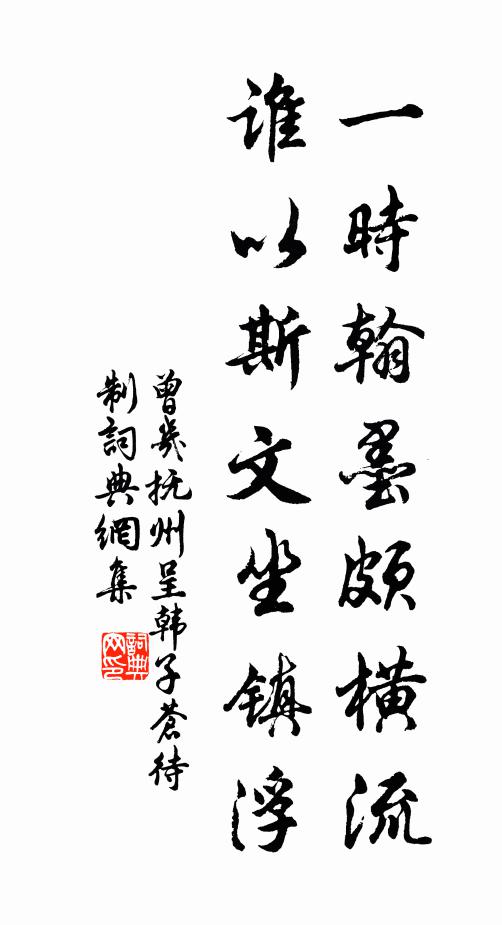 一時翰墨頗橫流
誰以斯文坐镇浮
曾幾抚州呈韩子蒼待
制詞典網集
詞典网印